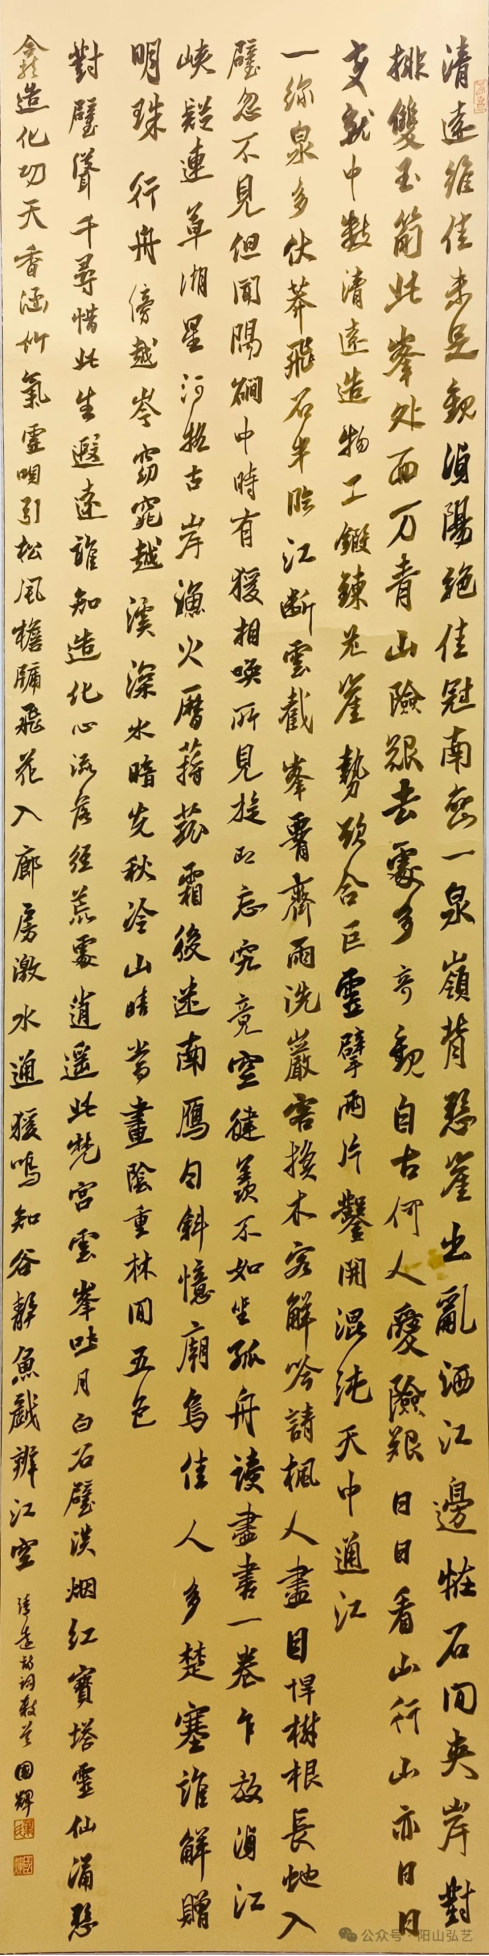 清遠維佳未是觀湞陽絶佳冠南蠻一泉嶺背懸崖出亂洒江邊怪石间夾岸對
排雙玉筍此峯外面万青山險艱去處多奇觀自古何人愛險艱日日看山行山亦日日
变就中數清遠造物工鍛鍊光崖勢欲合巨靈擘兩片鑿開混沌天中通江
一線泉多伏莽飛石半臨江斷雲截峯臂齊雨洗巖容換木客解吟詩楓人盡目悍樹根長虵入
壁忽不見但聞隔磵中時有猨相喚所見旋即忘究竟空健羡不如坐孤舟讀盡書一卷乍放湞江
峡疑連草湖星河抱古岸漁火曆蒋菰霜後迷南鴈勺斜憶廟烏佳人多楚塞誰解贈
明珠行舟傍越岑窈窕越溪深水暗先秋冷山晴當晝陰重林间五色
對壁聳千尋惜此生遐遠誰知造化心流落經荒處逍遥此梵宫雲峯吐月白石壁淡烟红寳塔靈仙涌懸
龕造化功天香涵竹氣靈唄引松风檐牖飛花入廊房激水通猨鳴知谷静魚戲辨江空
清遠古詞數首 国輝
公众号·阳山弘艺